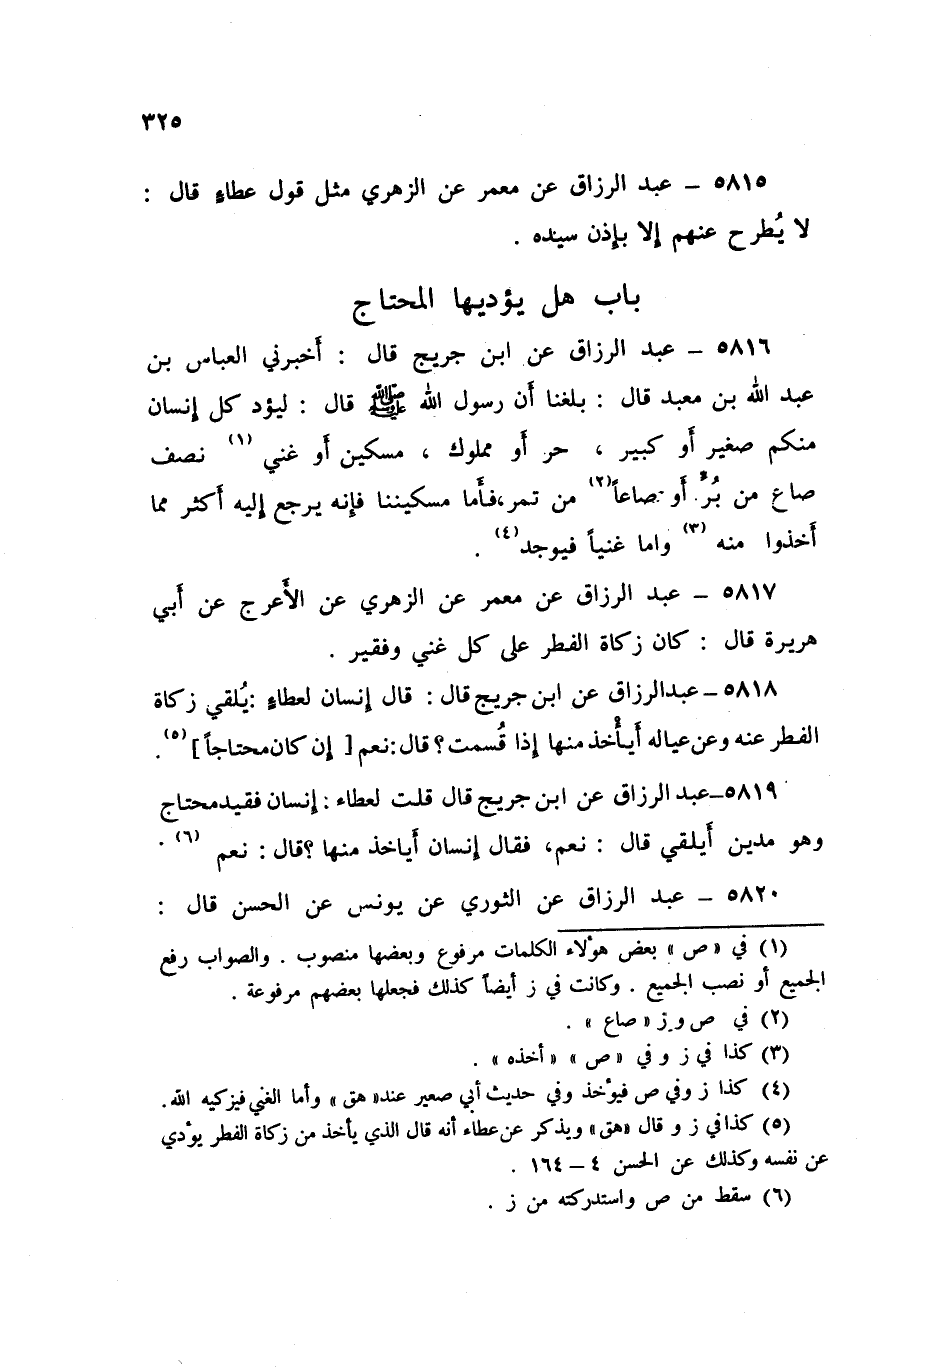 ٣٢٥
٥٨١٥ – عبد الرزاق عن معمر عن الزهري مثل قول عطاءٍ قال :
لا يُطرح عنهم إلا بإذن سيده .
باب هل يؤديها المحتاج
٥٨١٦ – عبد الرزاق عن ابن جريج قال : أخبرني العباس بن
عبد الله بن معبد قال : بلغنا أن رسول الله ﷺ قال : ليؤد كل إنسان
منكم صغير أو كبير ، حر أو مملوك ، مسكين أو غني (١) نصف
صاع من بُرٍّ أو صاعاً(٢) من تمر، فأما مسكيننا فإنه يرجع إليه أكثر مما
أخذوا منه (٣) واما غنياً فيوجد(٤) .
٥٨١٧ – عبد الرزاق عن معمر عن الزهري عن الأعرج عن أبي
هريرة قال : كان زكاة الفطر على كل غني وفقير .
٥٨١٨ – عبدالرزاق عن ابن جريج قال : قال إنسان لعطاءٍ : يُلقي زكاة
الفطر عنه وعن عياله أيأخذ منها إذا قُسمت؟ قال: نعم [ إن كان محتاجاً ](٥).
٥٨١٩–عبد الرزاق عن ابن جريج قال قلت لعطاء : إنسان فقيد محتاج
وهو مدين أيلقي قال : نعم، فقال إنسان أياخذ منها ؟قال : نعم (٦) .
٥٨٢٠ – عبد الرزاق عن الثوري عن يونس عن الحسن قال :
(١) في « ص » بعض هؤلاء الكلمات مرفوع وبعضها منصوب . والصواب رفع
الجميع أو نصب الجميع . وكانت في ز أيضاً كذلك فجعلها بعضهم مرفوعة .
(٢) في ص و ز « صاع » .
(٣) كذا في ز و في « ص » « أخذه » .
(٤) كذا ز وفي ص فيؤخذ وفي حديث أبي صعير عند« هق » وأما الغني فيزكيه الله .
(٥) كذا في ز و قال «هق» ويذكر عن عطاء أنه قال الذي يأخذ من زكاة الفطر يؤدي
عن نفسه وكذلك عن الحسن ٤ – ١٦٤ .
(٦) سقط من ص واستدركته من ز .